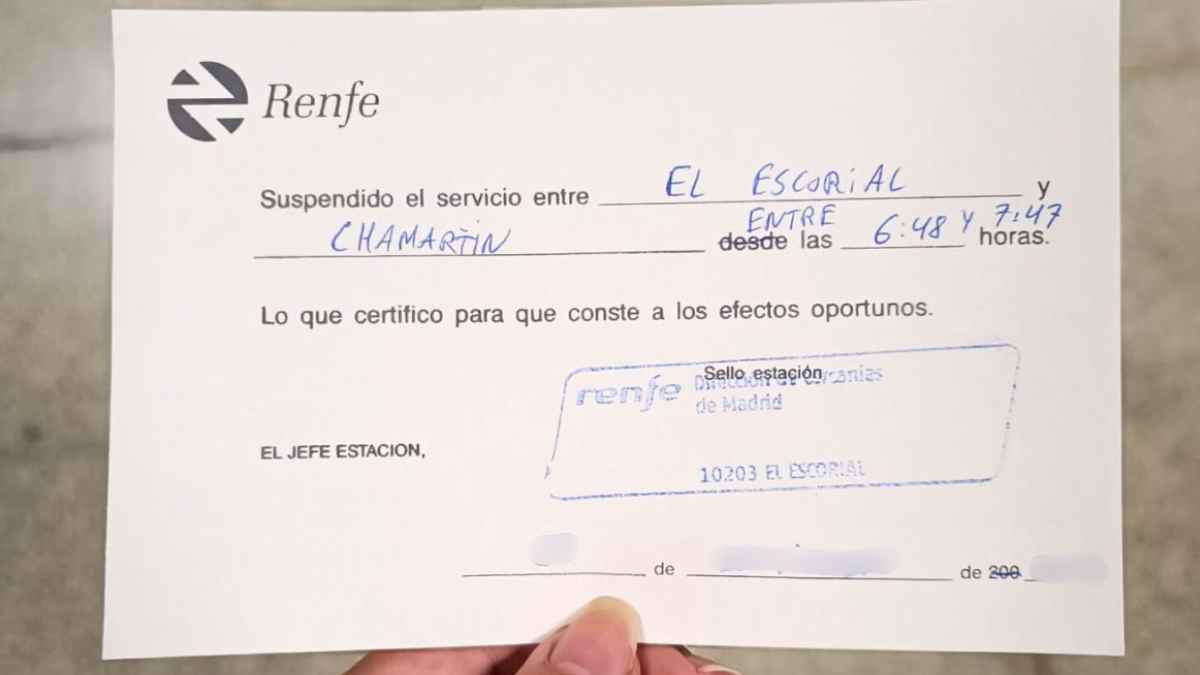 Renfe
Suspendido el servicio entre EL ESCORIAL y
CHAMARTIN desde ENTRE las 6:48 Y 7:47 horas.
Lo que certifico para que conste a los efectos oportunos.
Sello estación
renfe Dirección de Cercanías
de Madrid
EL JEFE ESTACION,
10203 EL ESCORIAL
de de 200